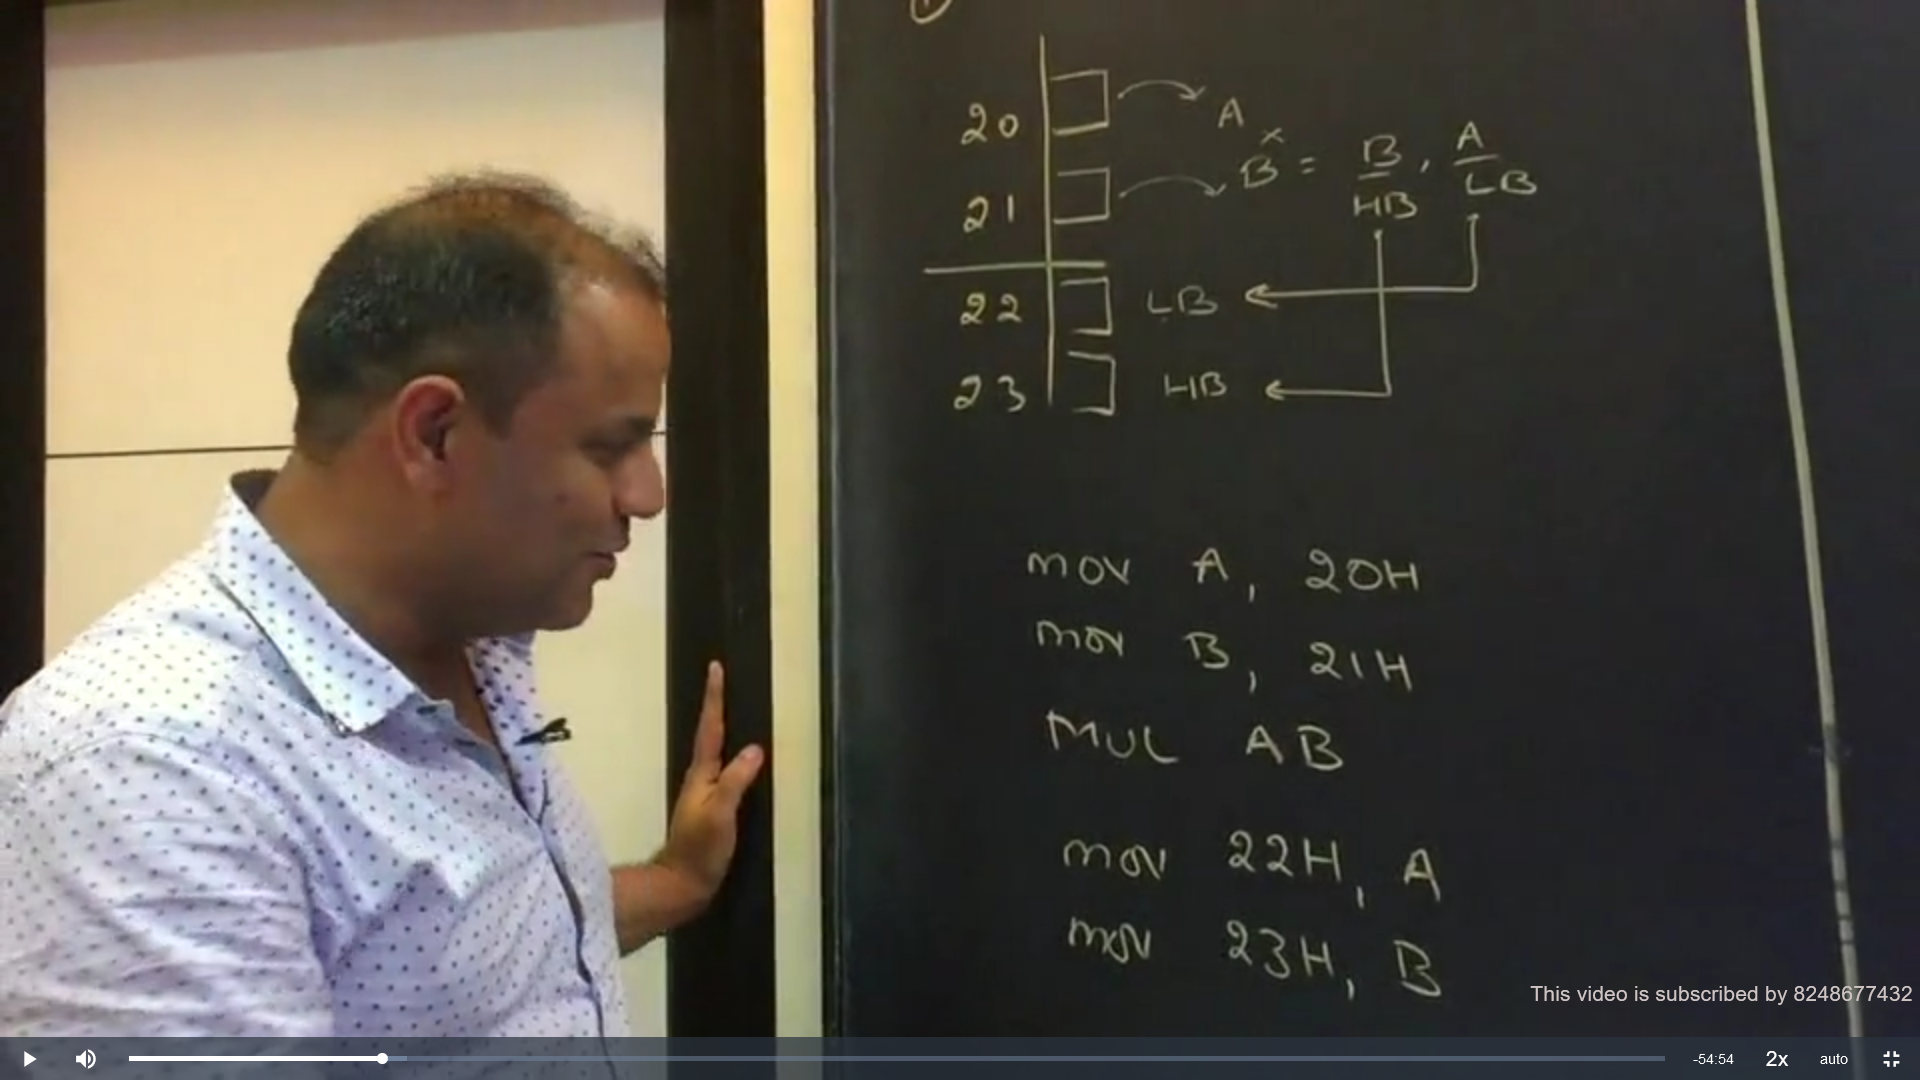 20 A
×
21 B = B/HB , A/LB
22 LB
23 HB
mov A, 20H
mov B, 21H
MUL AB
mov 22H, A
mov 23H, B
This video is subscribed by 8248677432
-54:54 2x auto